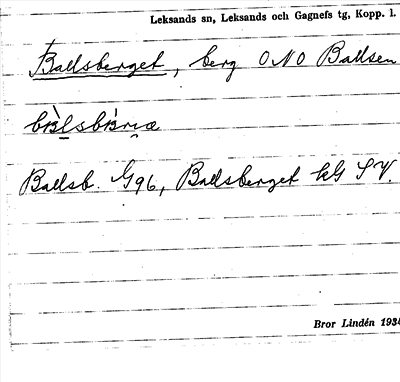 Leksands sn, Leksands och Gagnefs tg, Kopp. l.
Ballsberget, berg ONO Ballsen
Ballsb. G96, Ballsberget kG SV.
Bror Lindén 1936